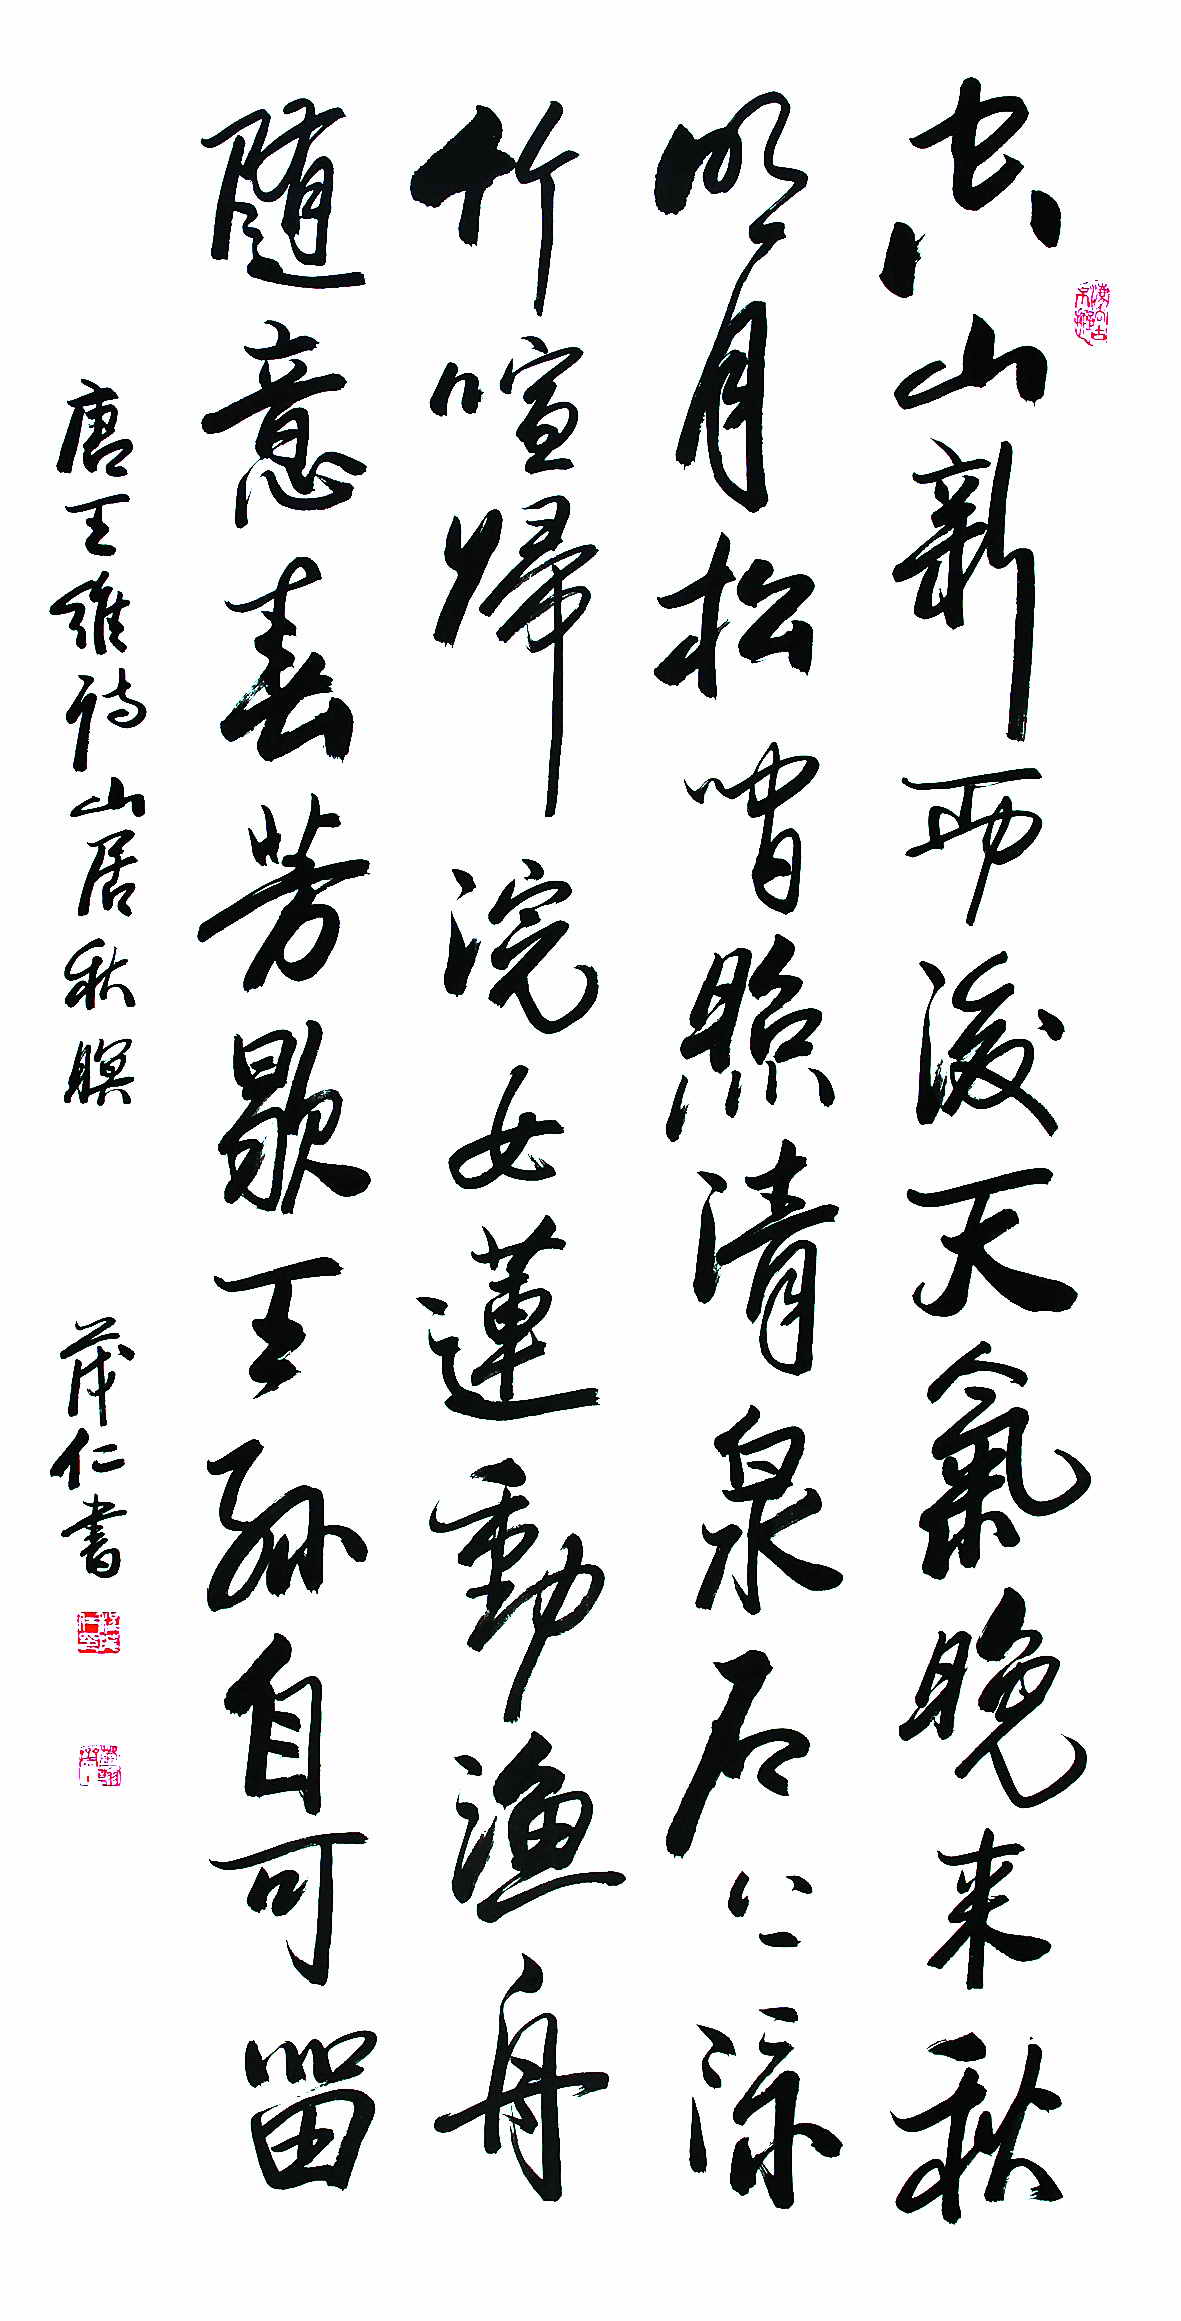 空山新雨後天氣晚来秋
明月松間照清泉石上流
竹喧歸浣女蓮動漁舟
随意春芳歇王孫自可留
唐王維詩山居秋瞑 茂仁書